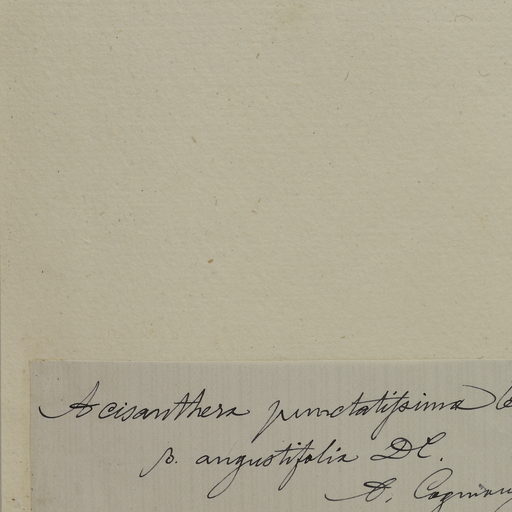 Acisanthera punctatissima
β. angustifolia DC.
A. Cogniau